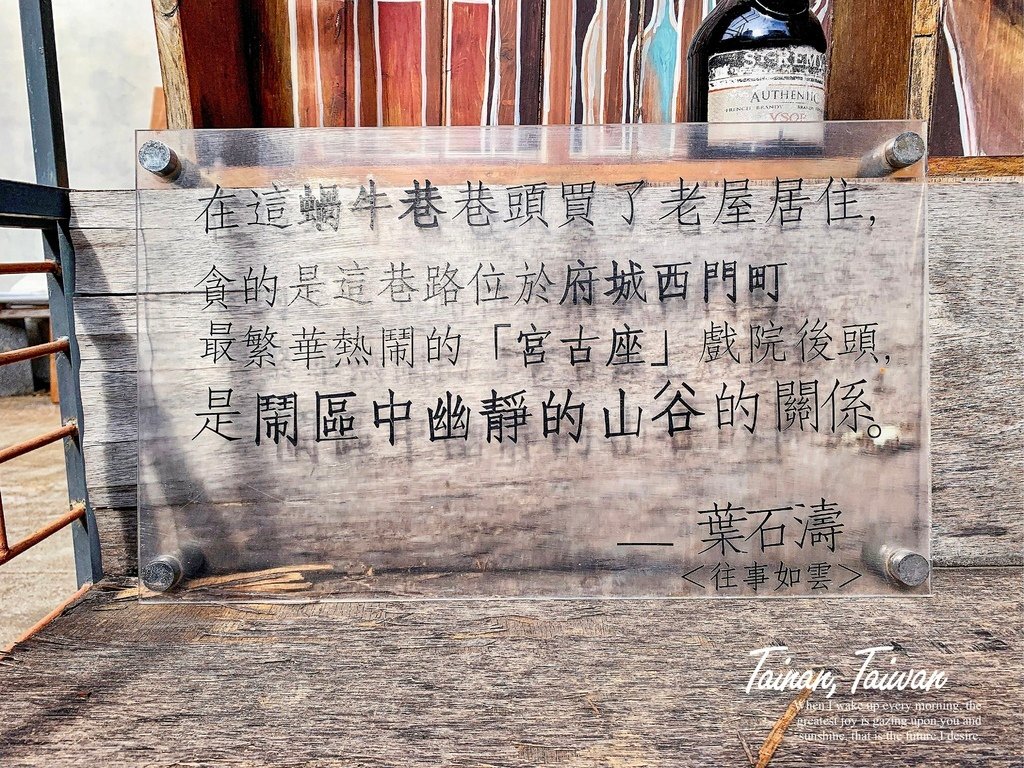 ST-RÉMY
AUTHENTIC
FRENCH BRANDY
VSOP
在這蝸牛巷巷頭買了老屋居住,
貪的是這巷路位於府城西門町
最繁華熱鬧的「宮古座」戲院後頭,
是鬧區中幽靜的山谷的關係。
— 葉石濤
<往事如雲>
Tainan, Taiwan
When I wake up every morning, the
greatest joy is gazing upon you and
sunshine, that is the future I desire.